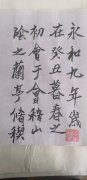 永和九年歲
在癸丑暮春之
初會于會稽山
陰之蘭亭脩稧